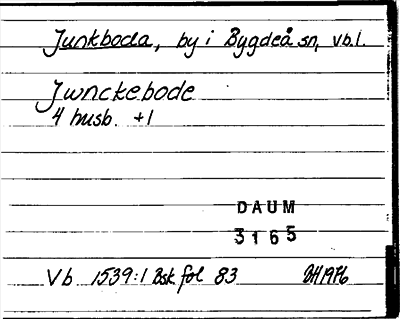 Junkboda, by i Bygdeå sn, v.b.l.
Jwnckebode
4 husb. +1
DAUM
3165
Vb 1539:1 Bsk fol 83 BH1976